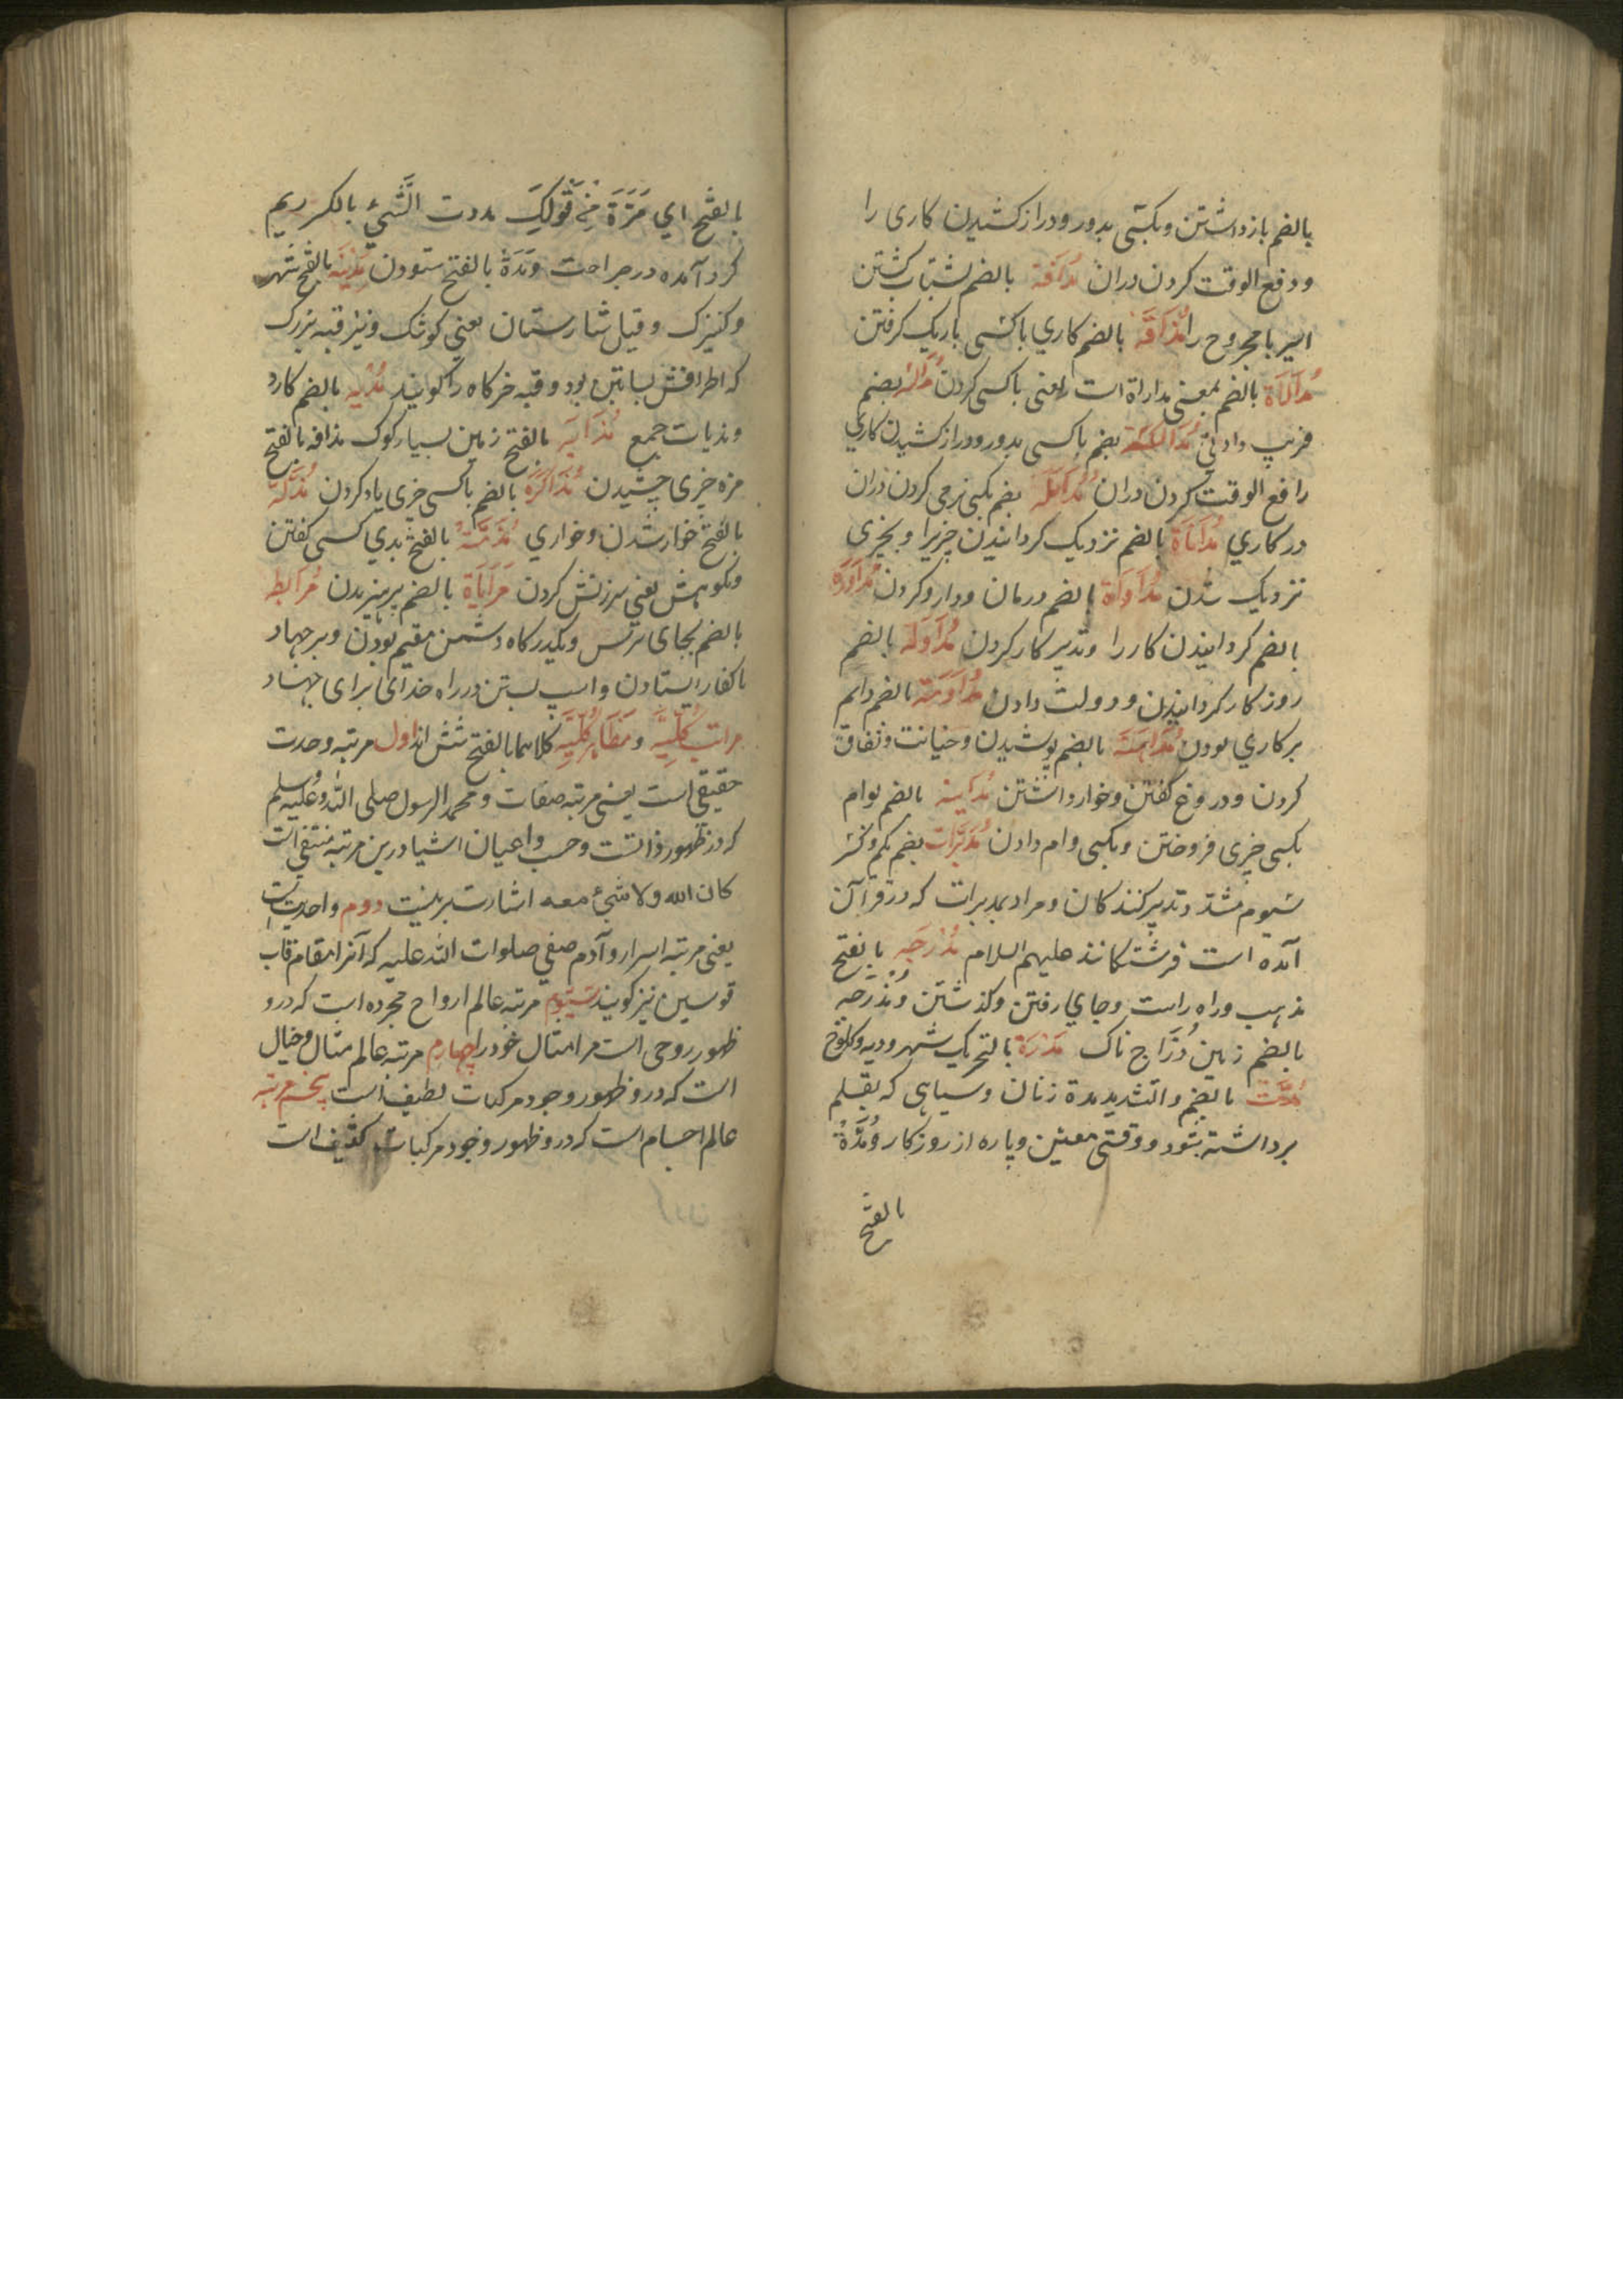 بالضم بازداشتن و بکسی بدور و دراز کشیدن کاری را
و دفع الوقت کردن دران مُدَافَّة بالضم بشتاب کشتن
اسیر یا مجروح را مُدَاقَّة بالضم کاري با کسی باریک کرفتن
مُدَالَاة بالضم بمعنی مداراة است یعنی با کسی کردن بضم
فریب دادن مُدَالَکَة بضم با کسی بدور و دراز کشیدن کاري
را دفع الوقت کردن دران بضم بکسی نرمی کردن دران
در کاري مُدَانَاة بالضم نزدیک کردانیدن چیزیرا و بچیزی
نزدیک شدن مُدَاوَاة بالضم درمان و دارو کردن مُدَاوَرَة
بالضم کردانیدن کار را و تدبیر کار کردن مُدَاوَلَة بالضم
روزکار کردانیدن و دولت دادن مُدَاوَمَة بالضم دایم
بر کاري بودن مُدَاهَنَة بالضم پوشیدن و خیانت و نفاق
کردن و دروغ کفتن و خوار داشتن مُدَاینه بالضم بوام
بکسی چیزی فروختن و بکسی وام دادن مُدَبِّرَات بضم یکم و کسر
سیوم مشدد تدبیر کنندکان و مراد بمدبرات که در قرآن
آمده است فرشتکانند علیهم السلام مَدْرَجَه بالفتح
مذهب و راه راست و جاي رفتن و کذشتن و مُدْرَجَه
بالضم زمین دُرَّاج ناک مَدَرَة بالتحریک شهر و دیه و کلوخ
مُدَّت بالضم و التشدید مدة زنان و سیاهی که بقلم
برداشته شود و وقتی معین و پاره از روزکار و مَدَّةُ
بالفتح
بالفتح اي مَرَّة مِنْ قَولِکَ مددت الشَّيْءِ بالکسر ریم
کرد آمده در جراحت و مَدَة بالفتح ستودن مَدِینَه بالفتح شهر
و کنیزک و قیل شارستان یعنی کوشک و نیز قبه بزرک
که اطرافش بساتین بود و قبه خرکاه را کویند مُدْیَه بالضم کارد
و مدیات جمع بالفتح زمین بسیار کوک مذاقه بالفتح
مزه چیزی چشیدن مُذَاکَرَة بالضم با کسی چیزی یاد کردن مَذَلَّة
بالفتح خوار شدن و خواري مَذَمَّةُ بالفتح بدي کسی کفتن
و نکوهش یعنی سرزنش کردن بالضم پرهیزیدن مُرَابَطه
بالضم بجای ترس و بکدرکاه دشمن مقیم بودن و بر جهاد
با کفار ایستادن و اسپ بستن در راه خدای برای جهاد
مراتب کُلِّیَّه و مَظَاهِر کُلِّیَّه کلاهما بالفتح شش اند اول مرتبه وحدت
حقیقی است یعنی مرتبه صفات و محمد الرسول صلی الله علیه وسلم
که در ظهور ذاتست و حسب و اعیان اشیا درین مرتبه منتفی است
کان الله ولا شیٔ معه اشارت برینست دوم واحدیت است
یعنی مرتبه اسرار و آدم صفی صلوات الله علیه که آنرا مقام قاب
قوسین نیز کویند سیوم مرتبه عالم ارواح مجرده است که درو
ظهور روحی است مر امثال خود را چهارم مرتبه عالم مثال و خیال
است که درو ظهور وجود مرکبات لطیف است پنجم مرتبه
عالم اجسام است که درو ظهور وجود مرکبات کثیف است